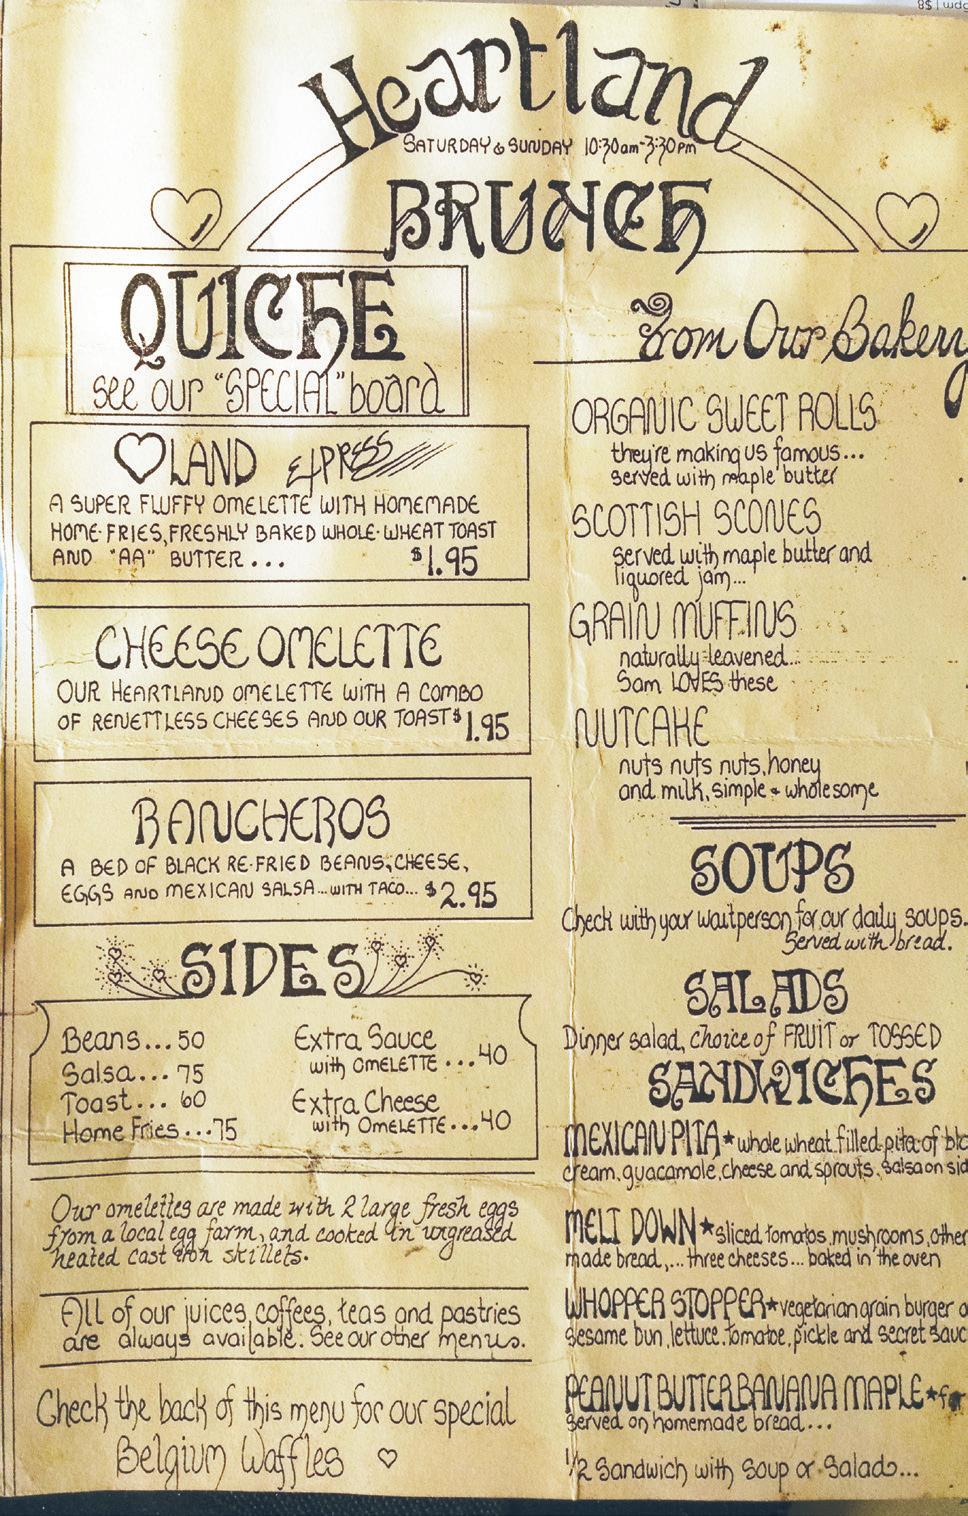 Heartland
SATURDAY & SUNDAY 10:30am-3:30pm
BRUNCH
QUICHE
see our "SPECIAL" board
LAND EXPRESS
A SUPER FLUFFY OMELETTE WITH HOMEMADE
HOME-FRIES, FRESHLY BAKED WHOLE-WHEAT TOAST
AND "AA" BUTTER... $1.95
CHEESE OMELETTE
OUR HEARTLAND OMELETTE WITH A COMBO
OF RENETTLESS CHEESES AND OUR TOAST $1.95
RANCHEROS
A BED OF BLACK RE-FRIED BEANS, CHEESE,
EGGS AND MEXICAN SALSA... WITH TACO... $2.95
SIDES
Beans... 50
Salsa... 75
Toast... 60
Home Fries...75
Extra Sauce
with OMELETTE ...40
Extra Cheese
with OMELETTE...40
Our omelettes are made with 2 large fresh eggs
from a local egg farm, and cooked in ungreased
heated cast iron skillets.
All of our juices, coffees, teas and pastries
are always available. See our other menus.
Check the back of this menu for our special
Belgium Waffles
From Our Bakery
ORGANIC SWEET ROLLS
they're making us famous...
served with maple butter
SCOTTISH SCONES
served with maple butter and
liquored jam...
GRAIN MUFFINS
naturally-leavened...
Sam LOVES these
NUTCAKE
nuts nuts nuts, honey
and milk, simple & wholesome
SOUPS
Check with your waitperson for our daily soups.
Served with bread.
SALADS
Dinner salad, choice of FRUIT or TOSSED
SANDWICHES
MEXICAN PITA * whole wheat filled pita of
cream, guacamole, cheese and sprouts, salsa on
MELT DOWN * sliced tomatos, mushrooms, other
made bread,... three cheeses... baked in the oven
WHOPPER STOPPER * vegetarian grain burger
sesame bun, lettuce, tomatoe, pickle and secret
PEANUT BUTTER BANANA MAPLE *
served on homemade bread...
1/2 Sandwich with Soup or Salad...